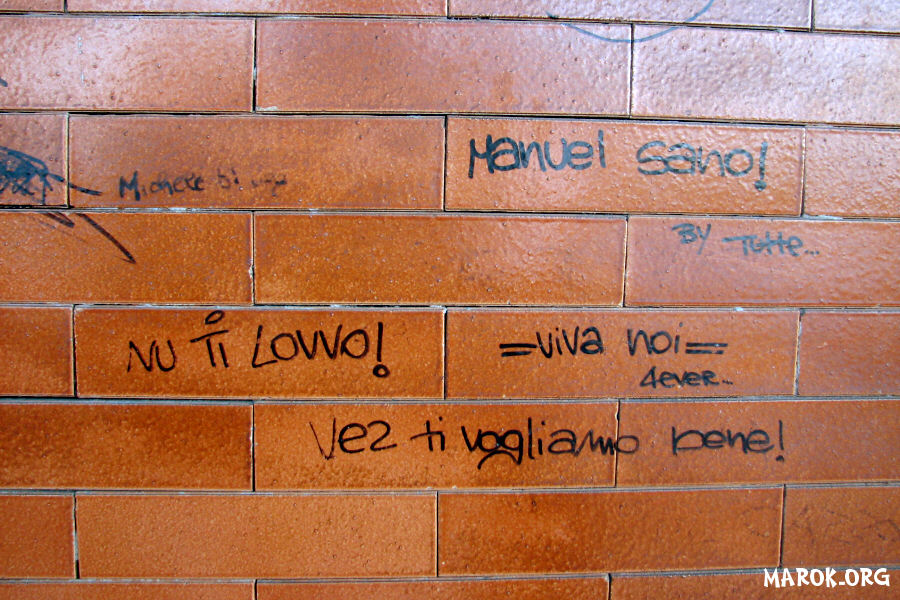 Manuel sano!
Michele di
BY Tutte...
NU Ti LOVVO!
=viva noi=
4ever...
Vez ti vogliamo bene!
MAROK.ORG